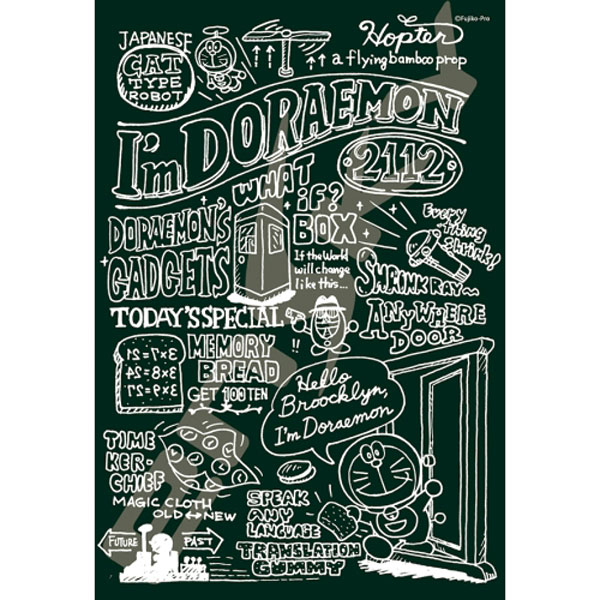 ©Fujiko-Pro
JAPANESE
CAT
TYPE
ROBOT
Hopter
a flying bamboo prop
I'm DORAEMON
2112
WHAT
iF?
BOX
If the World
will change
like this...
DORAEMON'S
GADGETS
Every
thing
Shrink!
SHRINK RAY~
TODAY'S SPECIAL
!!
ANYWHERE
DOOR
3×7=21
3×8=24
3×9=27
MEMORY
BREAD
GET 100 TEN
Hello
Broocklyn,
I'm Doraemon
TIME
KER-
CHIEF
MAGIC CLOTH
OLD↔NEW
FUTURE
PAST
SPEAK
ANY
LANGUAGE
TRANSLATION
GUMMY